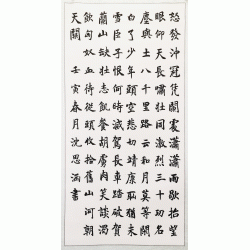 怒發沖冠凭闌處瀟瀟雨歇抬望
眼仰天長嘯壯懷激烈三十功名
塵與土八千里路云和月莫等閑
白了少年頭空悲切靖康耻猶未
雪臣子恨何時滅駕長車踏破賀
蘭山缺壯志飢餐胡虜肉笑談渴
飲匈奴血待從頭收拾舊山河朝
天闕 壬寅春月沈思涵書